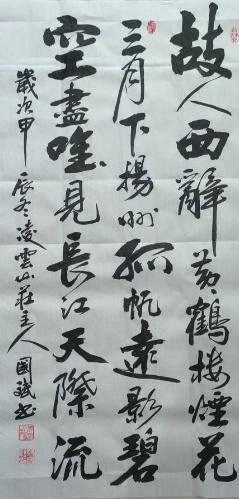 故人西辭黃鶴樓煙花
三月下揚州孤帆遠影碧
空盡唯見長江天際流
歲次甲辰冬凌雲山莊主人國斌書